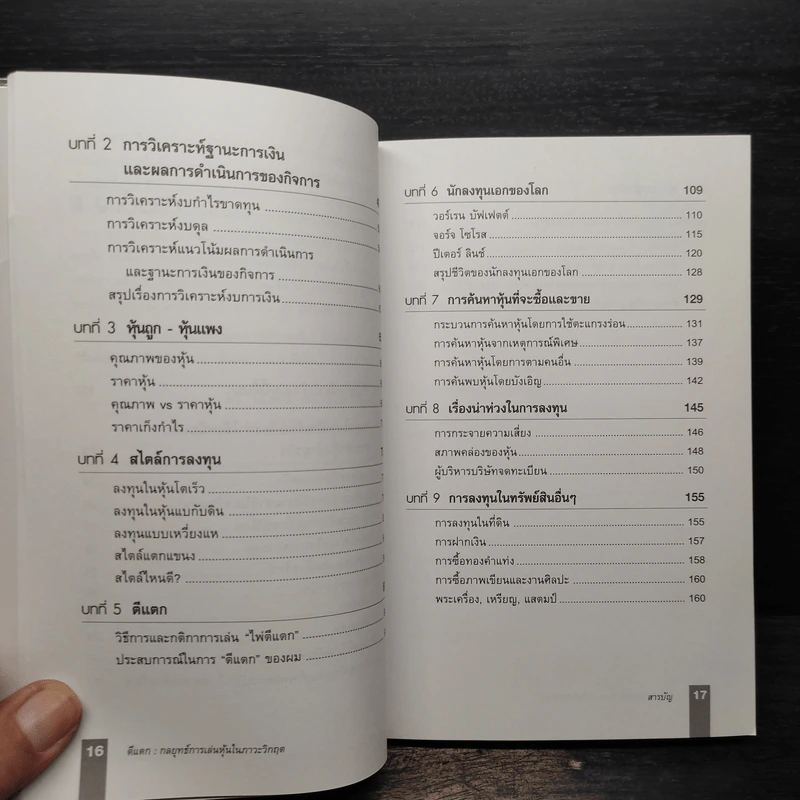 บทที่ 2 การวิเคราะห์ฐานะการเงิน
และผลการดำเนินการของกิจการ
การวิเคราะห์งบกำไรขาดทุน
การวิเคราะห์งบดุล
การวิเคราะห์แนวโน้มผลการดำเนินการ
และฐานะการเงินของกิจการ
สรุปเรื่องการวิเคราะห์งบการเงิน
บทที่ 3 หุ้นถูก - หุ้นแพง
คุณภาพของหุ้น
ราคาหุ้น
คุณภาพ vs ราคาหุ้น
ราคาเก็งกำไร
บทที่ 4 สไตล์การลงทุน
ลงทุนในหุ้นโตเร็ว
ลงทุนในหุ้นแบกับดิน
ลงทุนแบบเหวี่ยงแห
สไตล์แตกแขนง
สไตล์ไหนดี?
บทที่ 5 ตีแตก
วิธีการและกติกาการเล่น "ไพ่ตีแตก"
ประสบการณ์ในการ "ตีแตก" ของผม
16 ตีแตก : กลยุทธ์การเล่นหุ้นในภาวะวิกฤต
บทที่ 6 นักลงทุนเอกของโลก 109
วอร์เรน บัฟเฟตต์ 110
จอร์จ โซโรส 115
ปีเตอร์ ลินช์ 120
สรุปชีวิตของนักลงทุนเอกของโลก 128
บทที่ 7 การค้นหาหุ้นที่จะซื้อและขาย 129
กระบวนการค้นหาหุ้นโดยการใช้ตะแกรงร่อน 131
การค้นหาหุ้นจากเหตุการณ์พิเศษ 137
การค้นหาหุ้นโดยการตามคนอื่น 139
การค้นพบหุ้นโดยบังเอิญ 142
บทที่ 8 เรื่องน่าห่วงในการลงทุน 145
การกระจายความเสี่ยง 146
สภาพคล่องของหุ้น 148
ผู้บริหารบริษัทจดทะเบียน 150
บทที่ 9 การลงทุนในทรัพย์สินอื่นๆ 155
การลงทุนในที่ดิน 155
การฝากเงิน 157
การซื้อทองคำแท่ง 158
การซื้อภาพเขียนและงานศิลปะ 160
พระเครื่อง, เหรียญ, แสตมป์ 160
สารบัญ 17